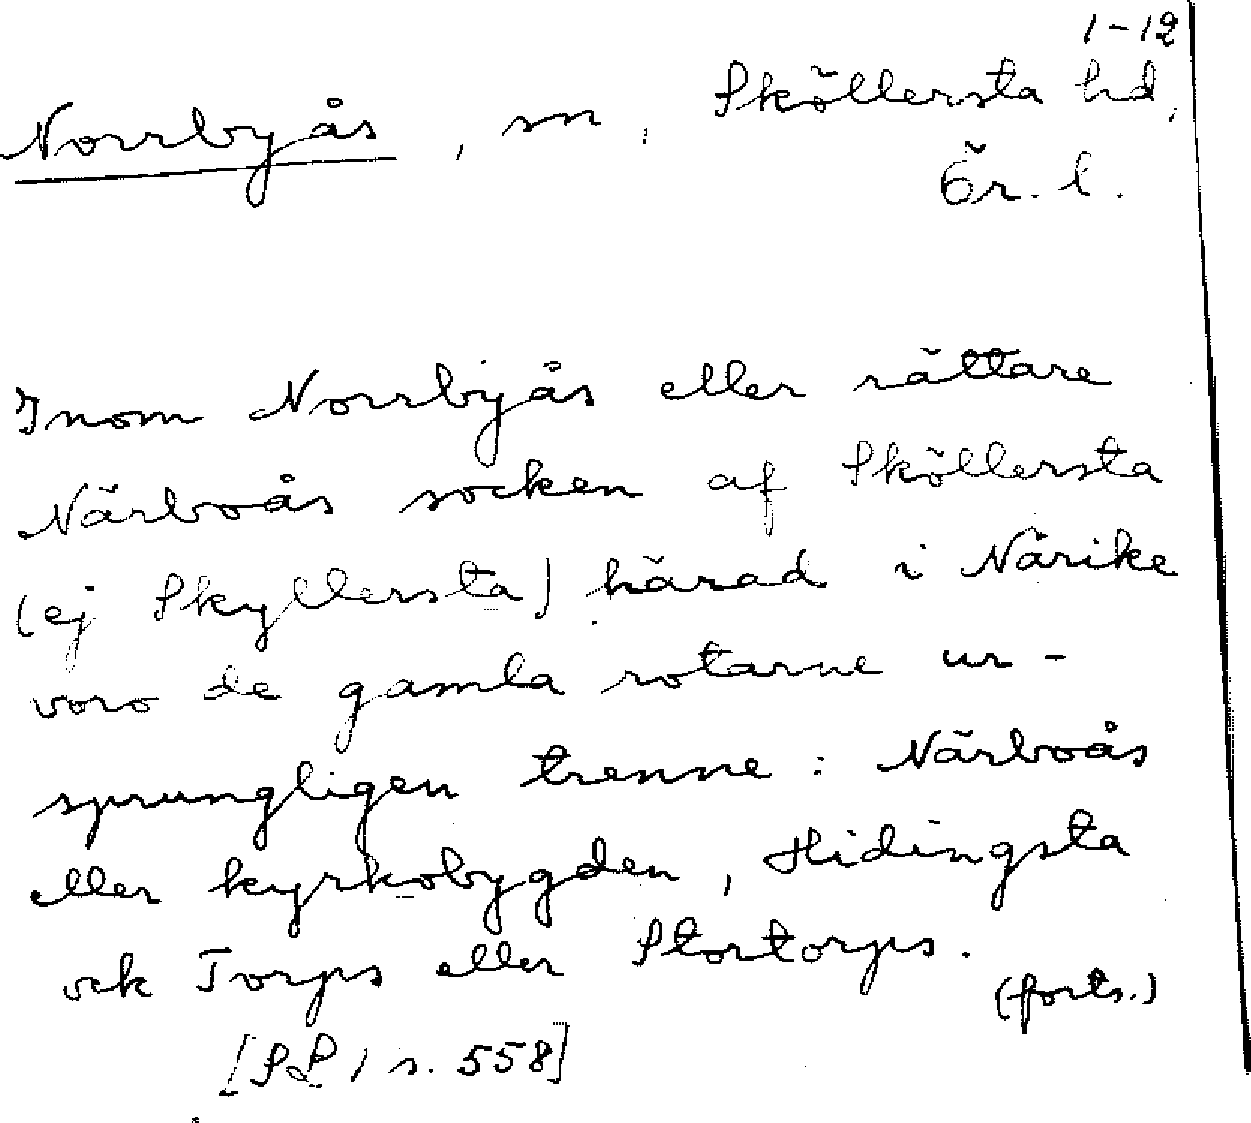 1-12
Norrbyås, sn, Sköllersta hd,
Ör. l.
Inom Norrbyås eller rättare
Närboås socken af Sköllersta
(ej Skyllersta) härad i Närike
voro de gamla rotarne ur-
sprungligen trenne: Närboås
eller kyrkobygden, Hidingsta
ock Torps eller Stortorps.
(forts.)
[SL 1 s. 558]